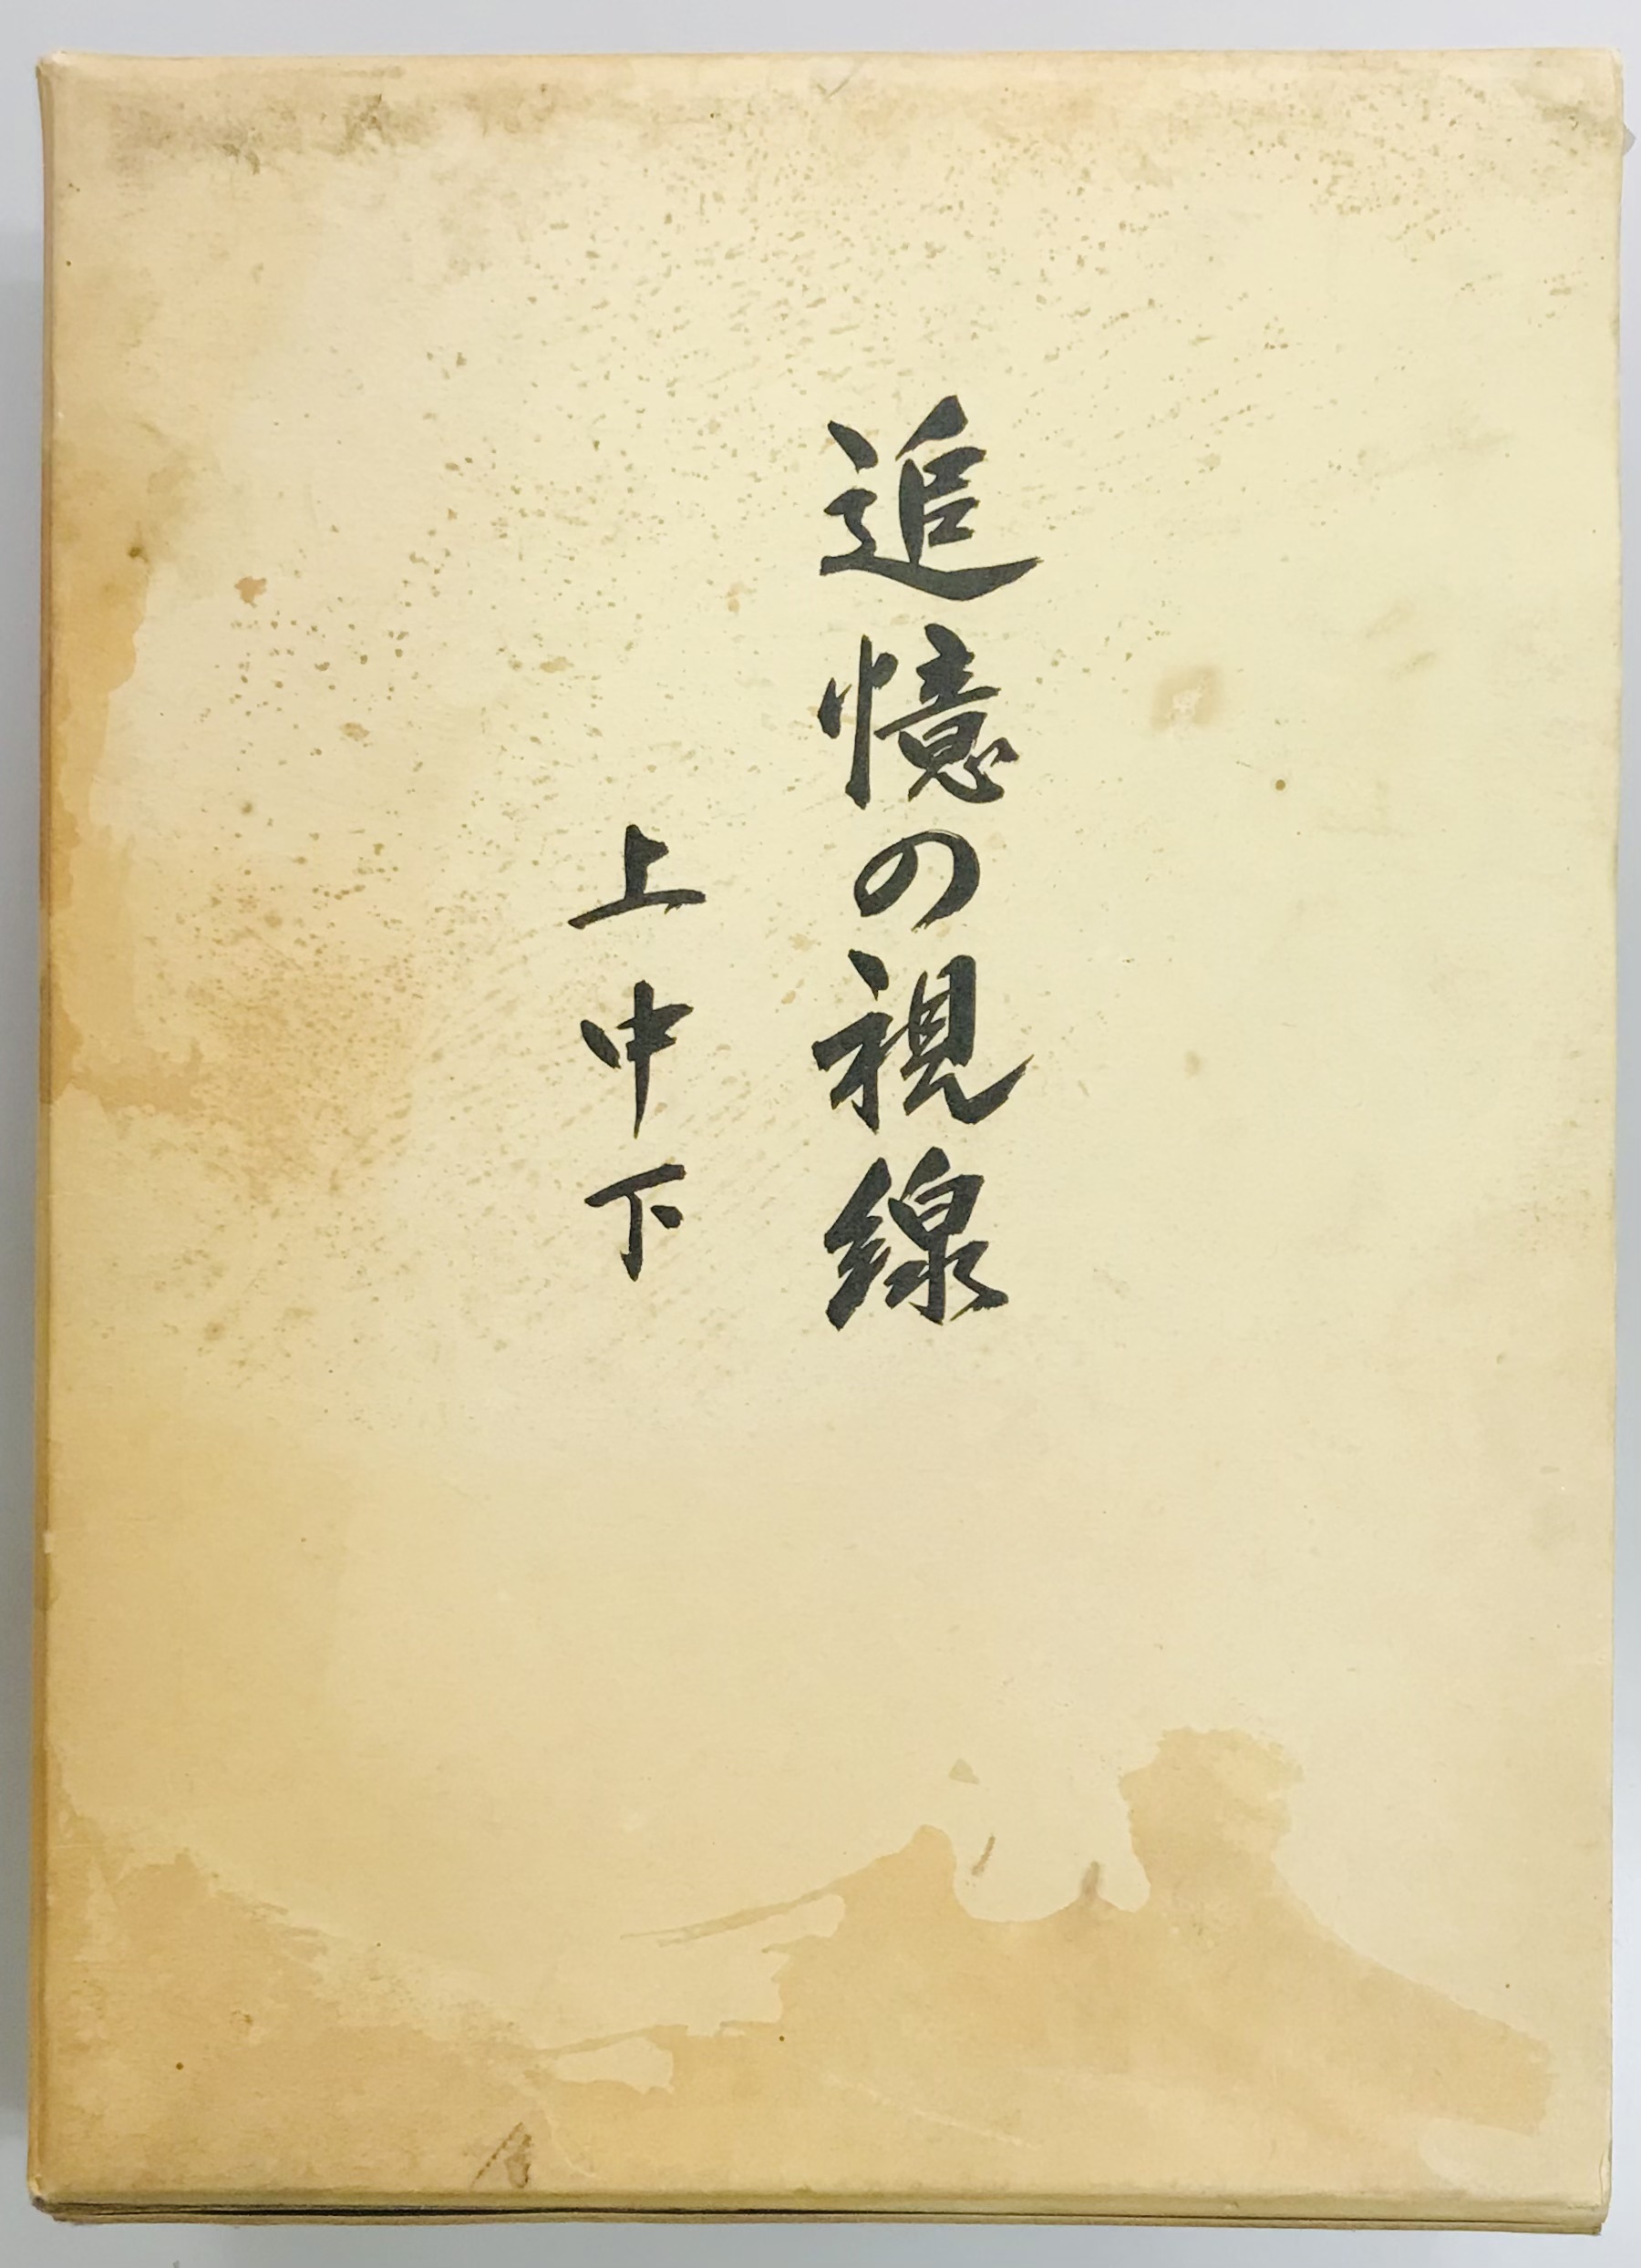 追憶の視線
上中下